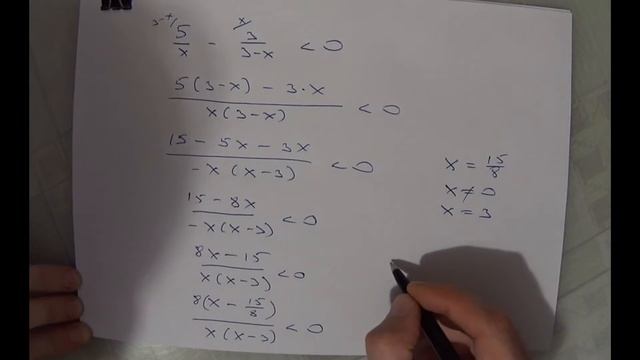 3-x/ 5/x - x/ 3/(3-x) < 0
(5(3-x) - 3·x)/(x(3-x)) < 0
(15 - 5x - 3x)/(-x(x-3)) < 0
(15 - 8x)/(-x(x-3)) < 0
(8x - 15)/(x(x-3)) < 0
(8(x - 15/8))/(x(x-3)) < 0
x = 15/8
x ≠ 0
x = 3